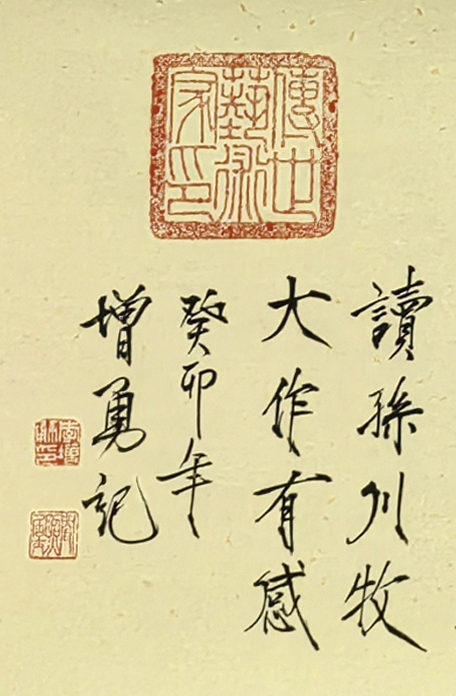 傳世
藝術
家印
讀孫川牧
大作有感
癸卯年
增勇記